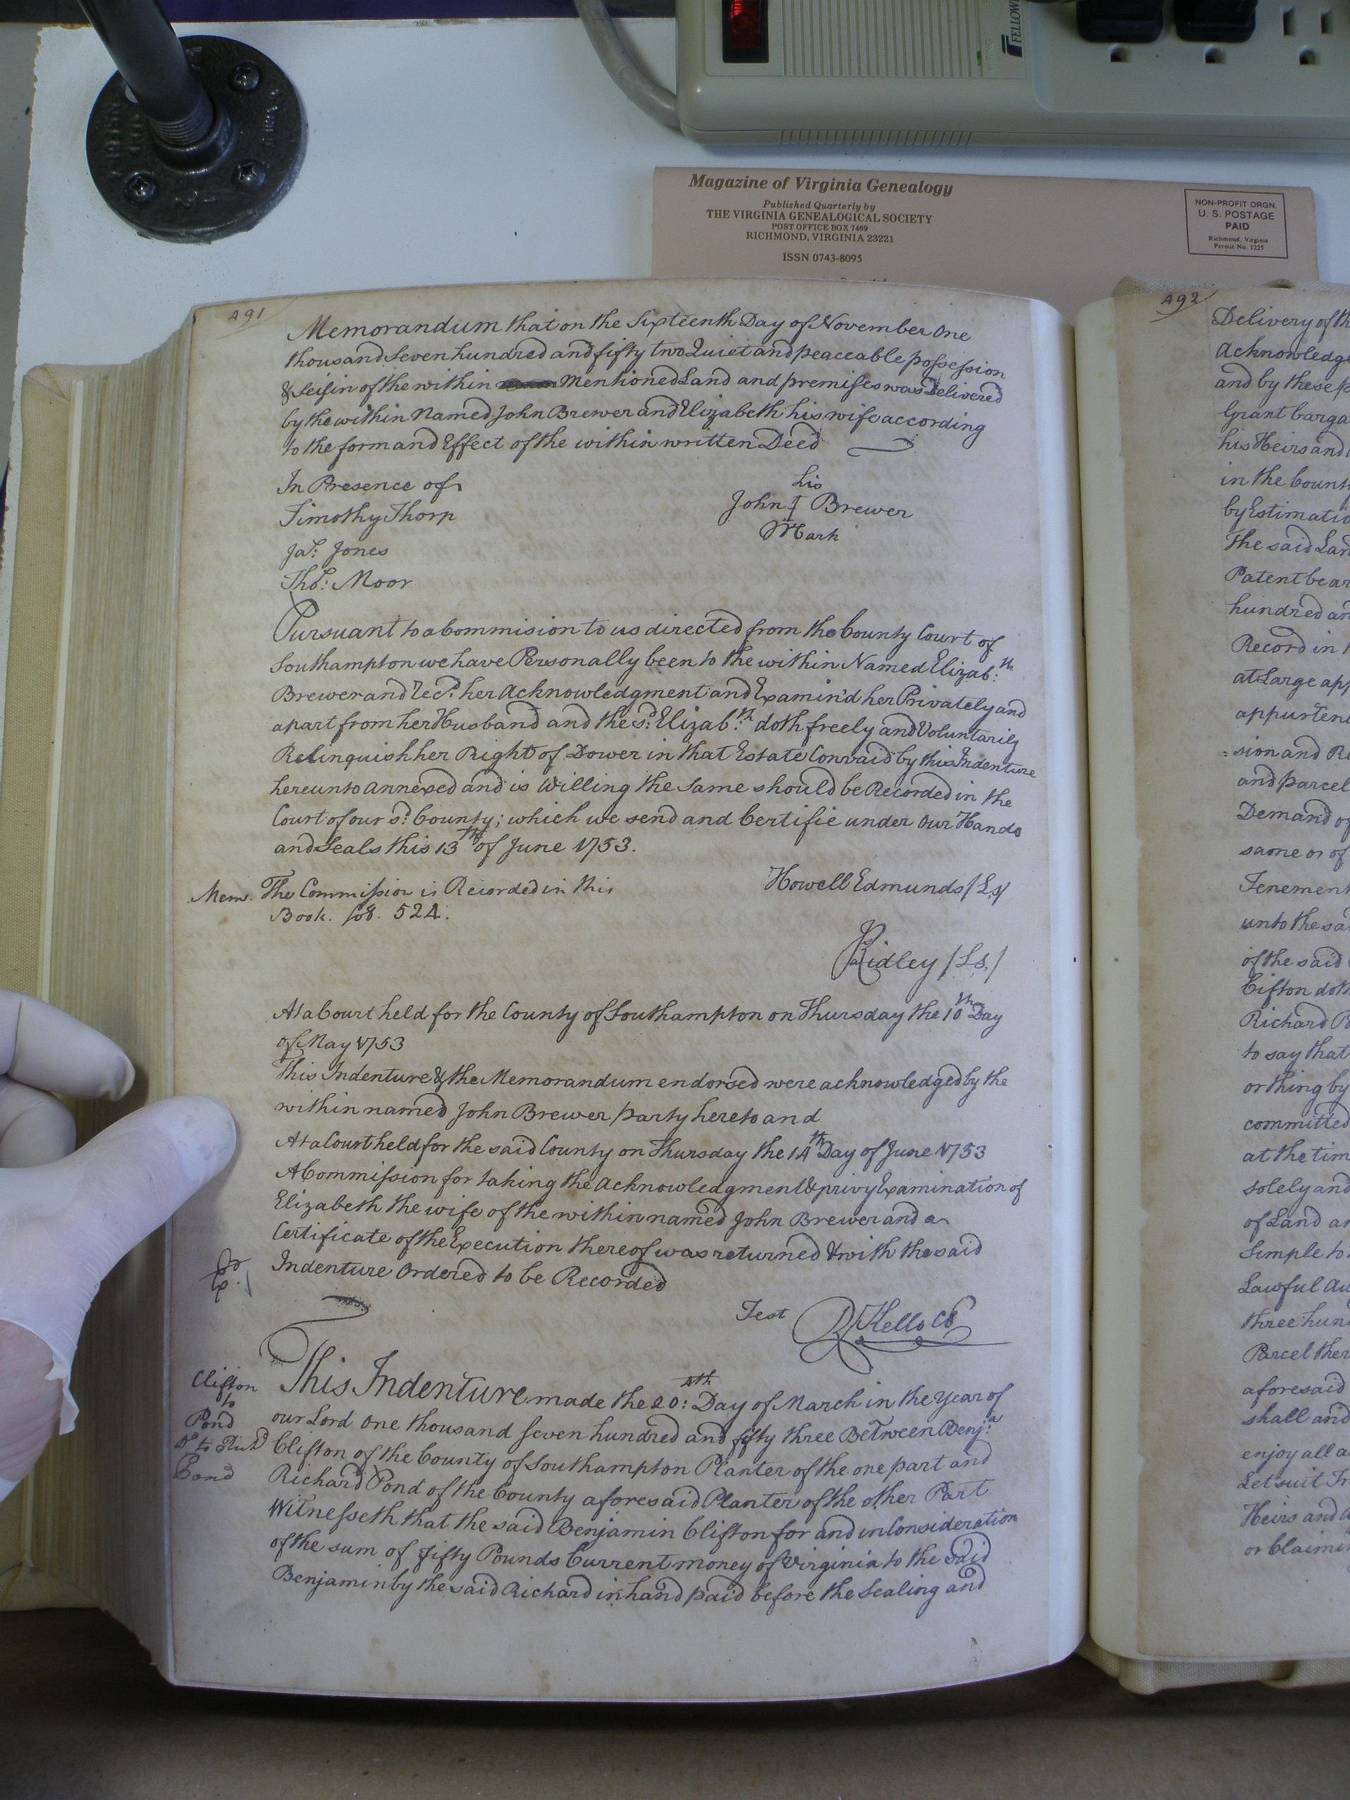 FELLOW
Magazine of Virginia Genealogy
Published Quarterly by
THE VIRGINIA GENEALOGICAL SOCIETY
POST OFFICE BOX 7469
RICHMOND, VIRGINIA 23221
ISSN 0743-8095
NON-PROFIT ORGN.
U. S. POSTAGE
PAID
Richmond, Virginia
Permit No. 1225
491
Memorandum that on the Sixteenth Day of November One
thousand Seven hundred and fifty two Quiet and peaceable possession
& Seisin of the within Mentioned Land and premises was Delivered
by the within Named John Brewer and Elizabeth his wife according
to the form and Effect of the within written Deed
In Presence of
Timothy Thorp
Jas. Jones
Thos: Moor
his
John I Brewer
Mark
Pursuant to a Commision to us directed from the County Court of
Southampton we have Personally been to the within Named Elizabth
Brewer and Recd. her Acknowledgment and Examin'd her Privately and
apart from her Husband and the sd. Elizabth doth freely and Voluntarily
Relinquish her Right of Dower in that Estate Convaid by this Indenture
hereunto annexed and is willing the Same should be Recorded in the
Court of our sd. County; which we send and Certifie under our Hands
and Seals this 13th of June 1753.
Mem. The Commission is Recorded in this
Book. fol. 524.
Howell Edmunds /Ls/
Ridley /Ls./
At a Court held for the County of Southampton on Thursday the 10th Day
of May 1753
This Indenture & the Memorandum endorsed were acknowledged by the
within named John Brewer party hereto and
At a Court held for the said County on Thursday the 14th Day of June 1753
A Commission for taking the Acknowledgment & privy Examination of
Elizabeth the wife of the within named John Brewer and a
Certificate of the Execution thereof was returned & with the said
Indenture Ordered to be Recorded
Test R Kello Cl
Clifton
to
Pond
Dd to Richd
Pond
This Indenture made the 20th: Day of March in the Year of
our Lord One thousand seven hundred and fifty three Between Benja
Clifton of the County of Southampton Planter of the one part and
Richard Pond of the County aforesaid Planter of the other Part
Witnesseth that the said Benjamin Clifton for and in Consideration
of the sum of fifty Pounds Current money of Virginia to the said
Benjamin by the said Richard in hand paid before the Sealing and
492
Delivery of th
Acknowledge
and by these p
Grant barga
his Heirs and
in the Count
by Estimatio
The said Lan
Patent bear
hundred an
Record in
at Large app
appurten
=sion and Re
and parcel
Demand of
same or of
Tenement
unto the sa
of the said
Clifton doth
Richard Po
to say that
or thing by
committed
at the tim
solely and
of Land an
Simple to
Lawful Au
three hun
Parcel ther
aforesaid
shall and
enjoy all a
Let suit Tr
Heirs and a
or Claimi